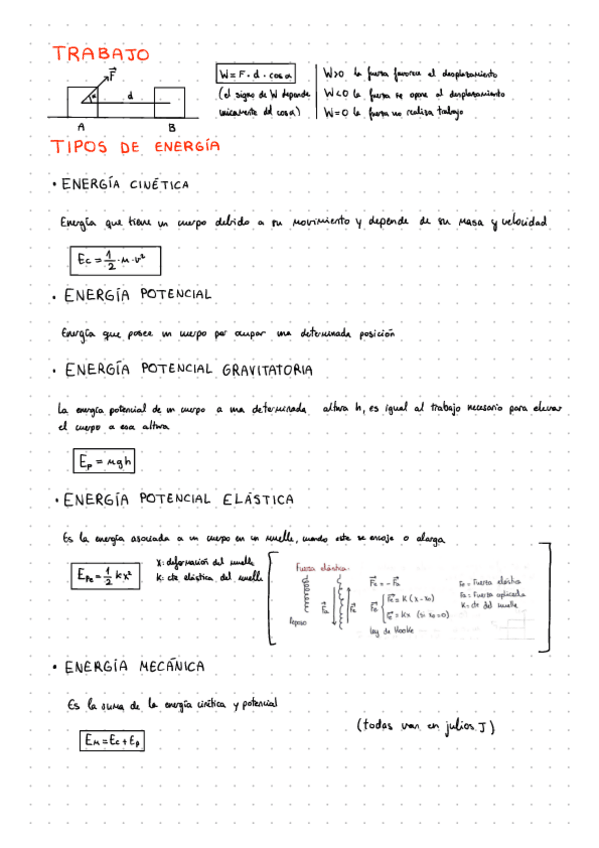 TRABAJO
F
α
d
A
B
W = F · d · cos α
(el signo de W depende
unicamente del cos α)
W>0 la fuerza favorece el desplazamiento
W<0 la fuerza se opone al desplazamiento
W=0 la fuerza no realiza trabajo
TIPOS DE ENERGÍA
· ENERGÍA CINÉTICA
Energía que tiene un cuerpo debido a su movimiento y depende de su masa y velocidad
Ec = 1/2 · m · v²
· ENERGÍA POTENCIAL
Energía que posee un cuerpo por ocupar una determinada posición
· ENERGÍA POTENCIAL GRAVITATORIA
La energía potencial de un cuerpo a una determinada altura h, es igual al trabajo necesario para elevar
el cuerpo a esa altura
Ep = mgh
· ENERGÍA POTENCIAL ELÁSTICA
Es la energía asociada a un cuerpo en un muelle, cuando este se encoje o alarga
Epe = 1/2 kx²
X: deformación del muelle
K: cte elástica del muelle
Fuerza elástica.
reposo
Fe = - Fa
Fe = K (x - x0)
= Kx (si x0 = 0)
Ley de Hooke
Fe = Fuerza elástica
Fa = Fuerza aplicada
K = cte del muelle
· ENERGÍA MECÁNICA
Es la suma de la energía cinética y potencial
Em = Ec + Ep
(todas van en julios J)